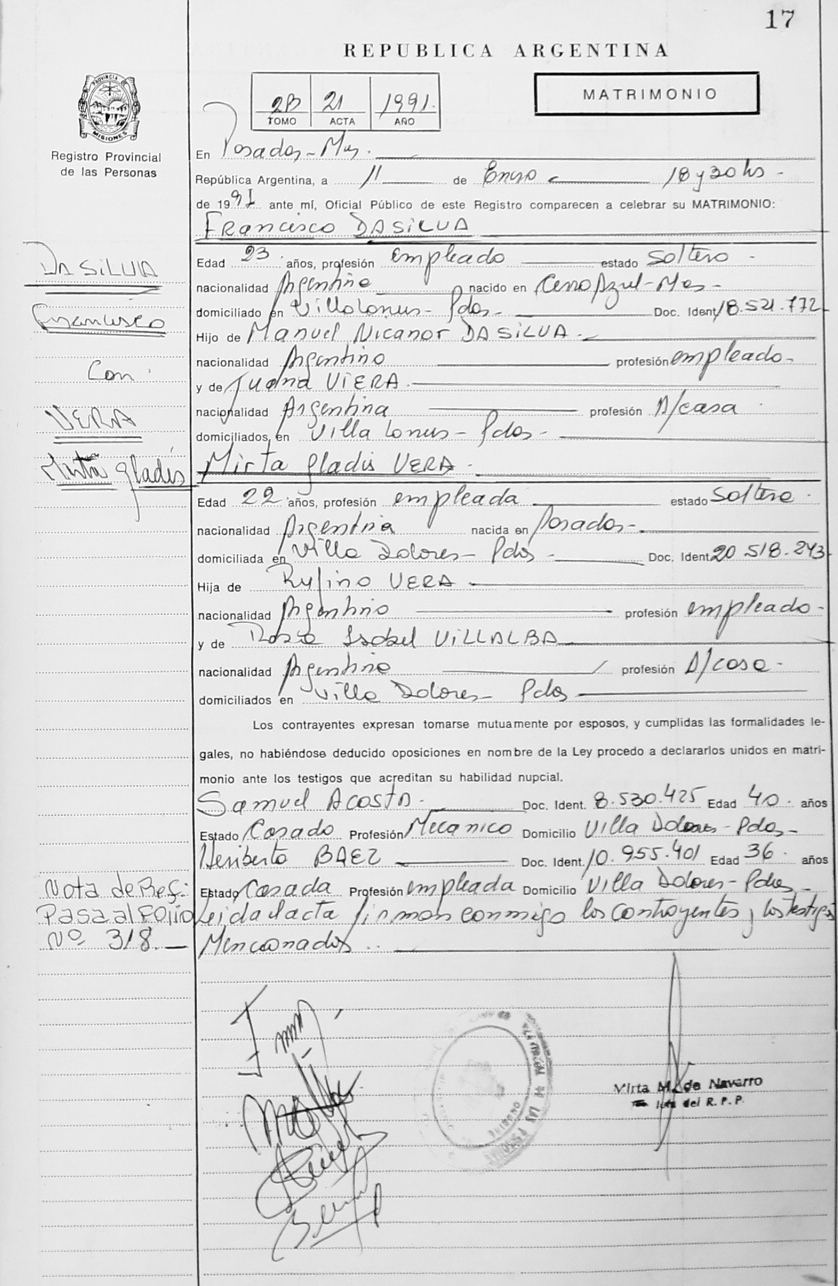 17
REPUBLICA ARGENTINA
PROVINCIA DE MISIONES
Registro Provincial
de las Personas
2B 21 1991
TOMO ACTA AÑO
MATRIMONIO
En Posadas - Mnes.
República Argentina, a 11 de Enero 18 y 30 hs -
de 1991 ante mí, Oficial Público de este Registro comparecen a celebrar su MATRIMONIO:
Francisco DASILVA
DASILVA
Francisco
Con
VERA
Mirta Gladis
Edad 23 años, profesión empleado estado Soltero
nacionalidad Argentino nacido en Cerro Azul - Mes -
domiciliado en Villa Lonus - Pdas - Doc. Ident 18.521.772
Hijo de Manuel Nicanor DASILVA -
nacionalidad Argentino profesión empleado -
y de Juana VIERA
nacionalidad Argentina profesión A/casa
domiciliados en Villa Lonus - Pdas -
Mirta Gladis VERA
Edad 22 años, profesión empleada estado Soltera
nacionalidad Argentina nacida en Posadas -
domiciliada en Villa Dolores - Pdas - Doc. Ident 20.518.243
Hija de Rufino VERA
nacionalidad Argentino profesión empleado -
y de Rosa Isabel VILLALBA
nacionalidad Argentina profesión A/casa -
domiciliados en Villa Dolores - Pdas
Los contrayentes expresan tomarse mutuamente por esposos, y cumplidas las formalidades le-
gales, no habiéndose deducido oposiciones en nombre de la Ley procedo a declararlos unidos en matri-
monio ante los testigos que acreditan su habilidad nupcial.
Samuel ACOSTA - Doc. Ident. 8.530.425 Edad 40 años
Estado Casado Profesión Mecanico Domicilio Villa Dolores - Pdas -
Heriberto BAEZ Doc. Ident. 10.955.401 Edad 36 años
Estado Casada Profesión empleada Domicilio Villa Dolores - Pdas -
Nota de Ref:
Pasa al Folio
Nº 318
Leida el acta firman conmigo los contrayentes y los testigos
Mencionados
Mirta M. de Navarro
del R. P. P.